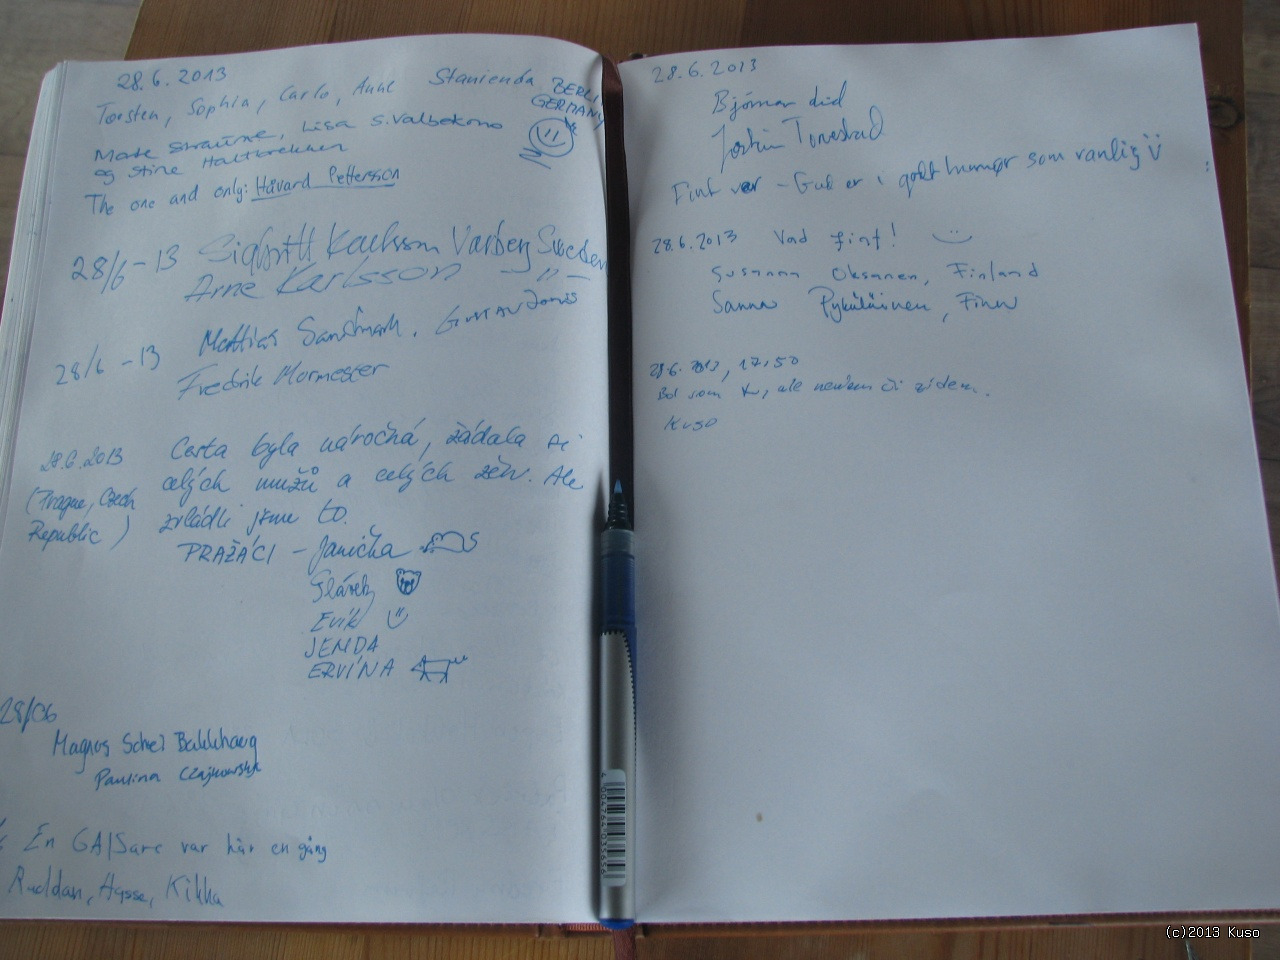 28.6.2013
Torsten, Sophia, Carlo, Anne Stanienda BERLIN
GERMANY
Lisa S. Valbekmo
og Stine Haltbrekken
The one and only: Håvard Pettersson
28/6-13 Karlsson Varberg Sweden
Arne Karlsson
28/6-13 Mattias Sandmark, Gustav
Fredrik Mormester
28.6.2013 Cesta byla náročná, žádala si
(Prague, Czech celých mužů a celých žen. Ale
Republic) zvládli jsme to.
PRAŽÁCI - Janička
Evík
JENDA
ERVÍNA
28/06
Magnus Schei Bakkhaug
Paulina Czajkowska
En GA/Sare var här en gång
Ruddan, Hasse, Kikka
28.6.2013
Bjørnar
Fint vær - Gud er i godt humør som vanlig
28.6.2013 Vad fint!
Susanna Oksanen, Finland
Sanna Pykäläinen, Finn
28.6.2013, 17:50
Bol som tu, ale neviem či zídem.
Kuso
4 004764 035656
(c)2013 Kuso